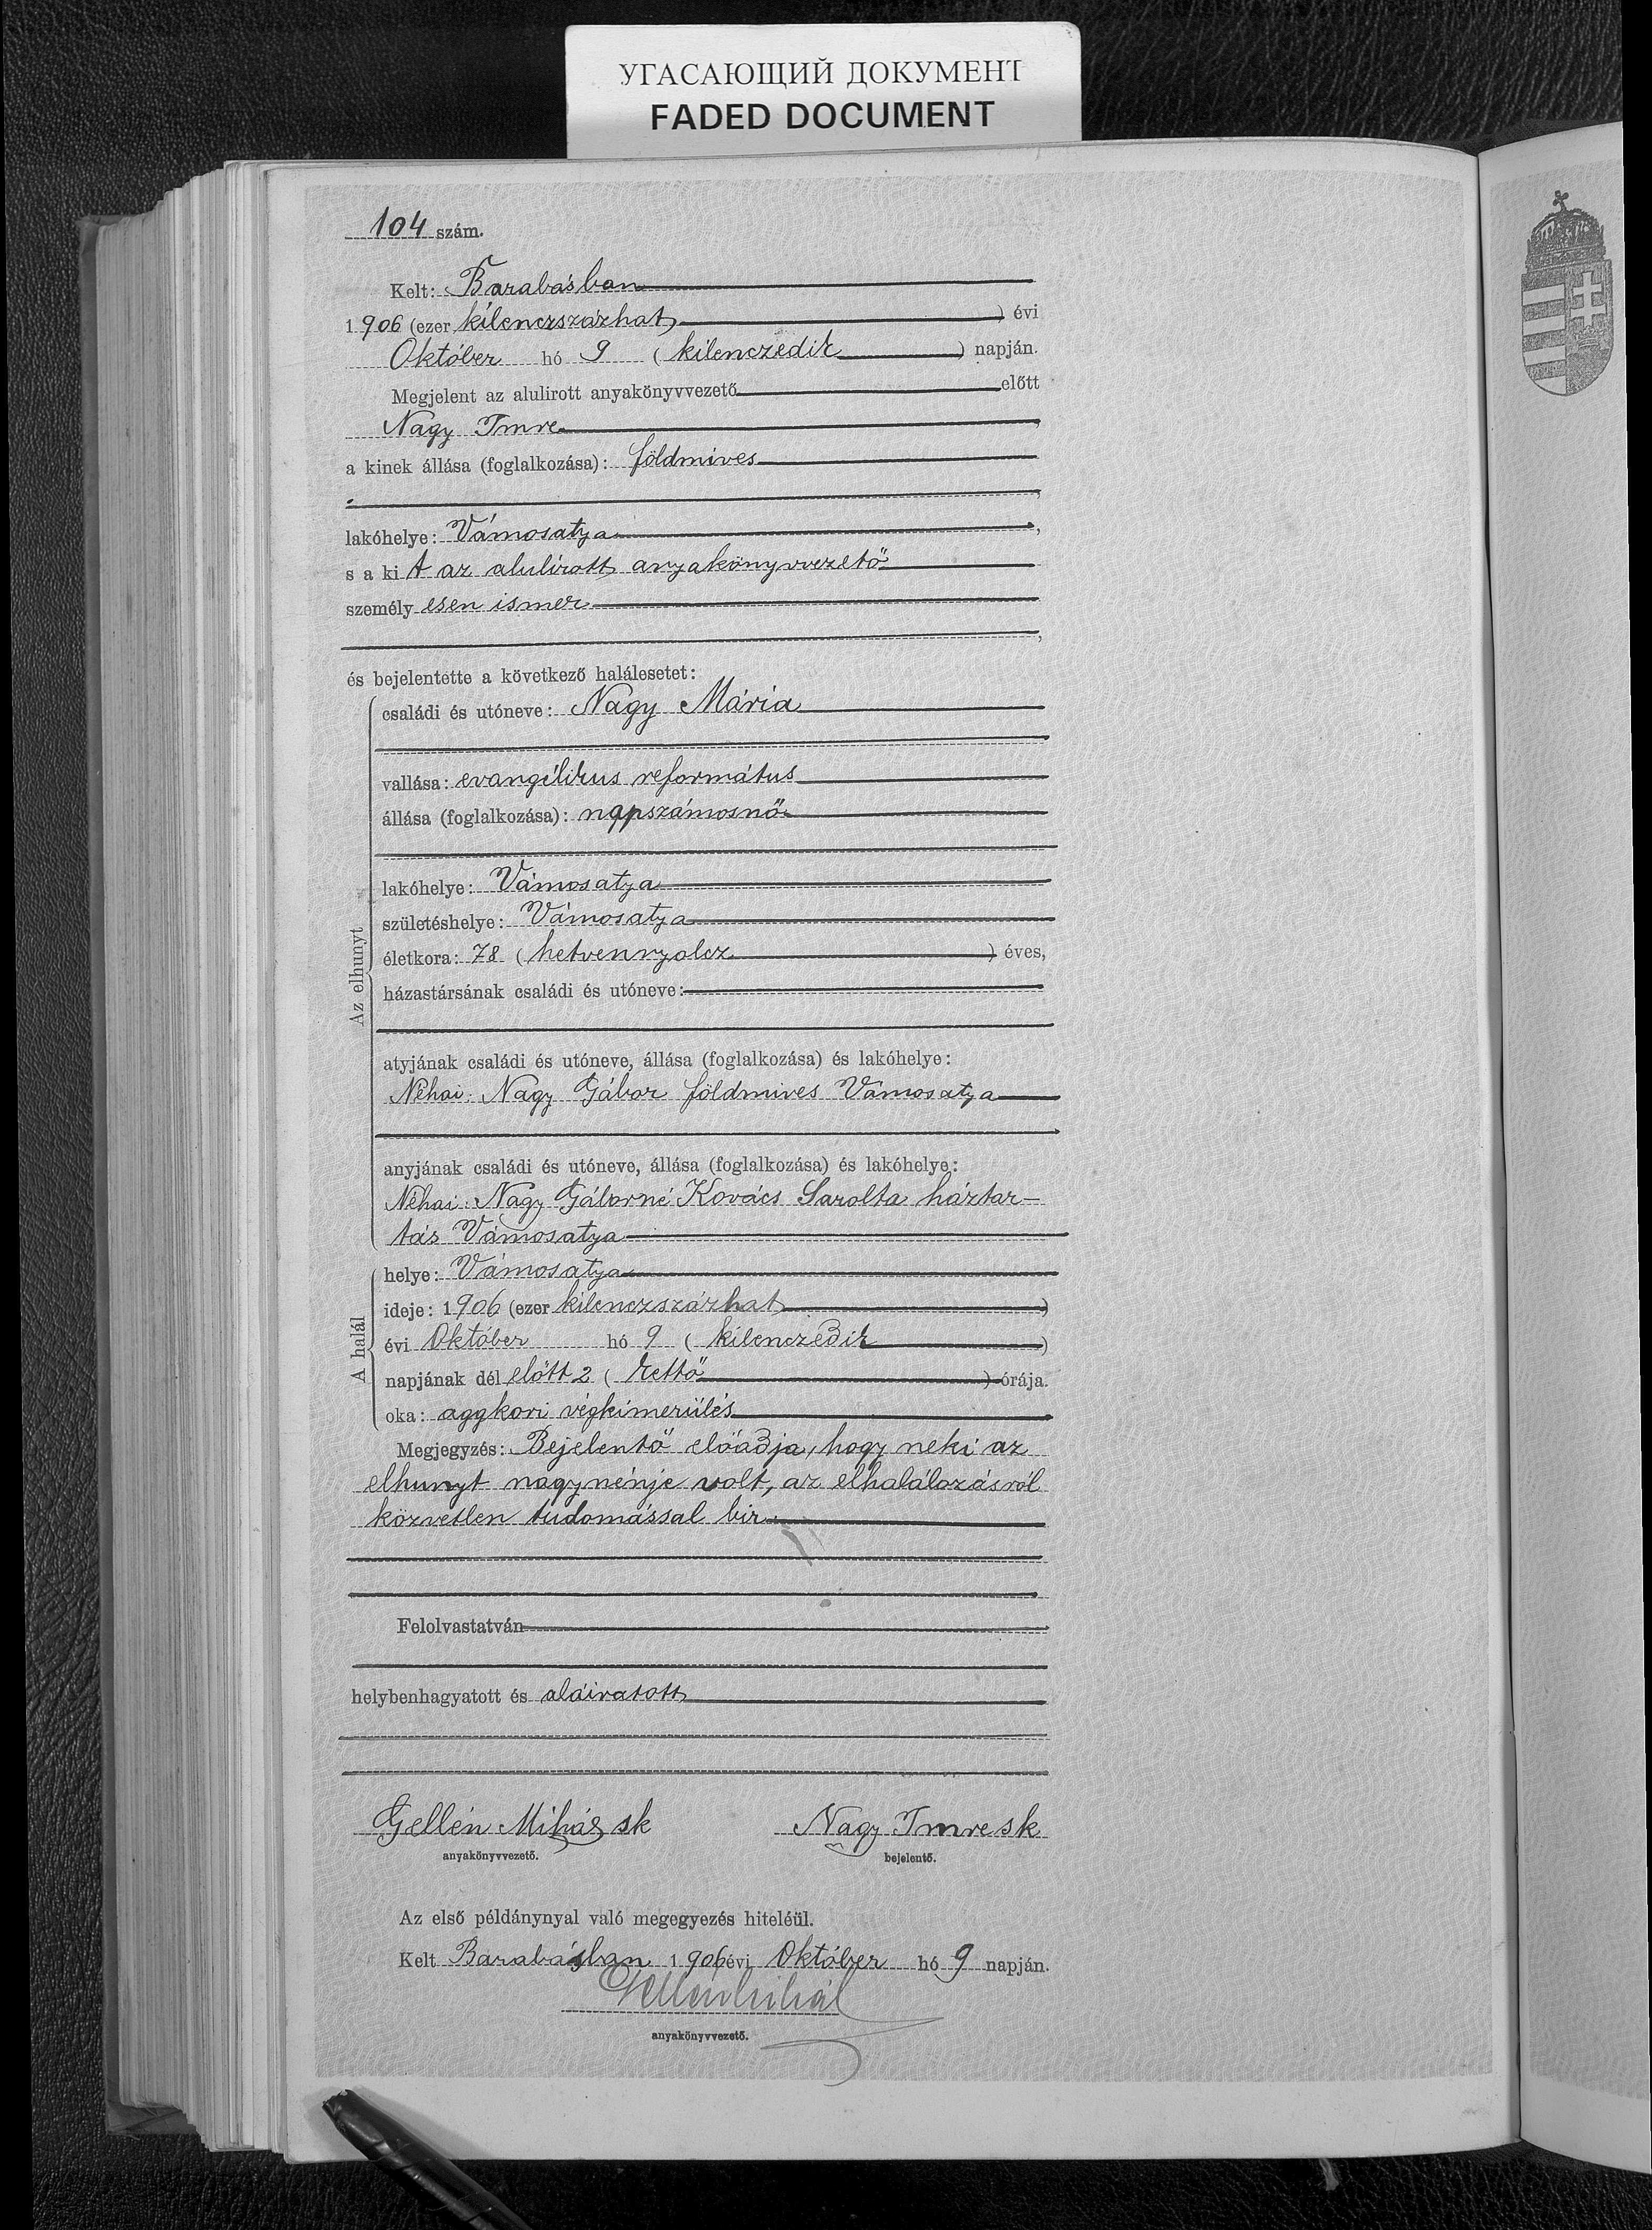 УГАСАЮЩИЙ ДОКУМЕНТ
FADED DOCUMENT
104 szám.
Kelt: Barabásban
1906 (ezer kilenczszázhat) évi
Október hó 9 (kilenczedik) napján.
Megjelent az alulirott anyakönyvvezető előtt
Nagy Imre,
a kinek állása (foglalkozása): földmives
lakóhelye: Vámosatya,
s a ki t az alulirott anyakönyvvezető
személy esen ismer,
és bejelentette a következő halálesetet:
Az elhunyt
családi és utóneve: Nagy Mária
vallása: evangélikus református
állása (foglalkozása): napszámosnő
lakóhelye: Vámosatya
születéshelye: Vámosatya
életkora: 78 (hetvennyolcz) éves,
házastársának családi és utóneve:
atyjának családi és utóneve, állása (foglalkozása) és lakóhelye:
Néhai Nagy Gábor földmives Vámosatya
anyjának családi és utóneve, állása (foglalkozása) és lakóhelye:
Néhai Nagy Gáborné Kovács Sarolta háztar-
tás Vámosatya
A halál
helye: Vámosatya
ideje: 1906 (ezer kilenczszázhat)
évi Október hó 9 (kilenczedik)
napjának dél előtt 2 (kettő) órája.
oka: aggkori végkimerülés
Megjegyzés: Bejelentő előadja, hogy neki az
elhunyt nagynénje volt, az elhalálozásról
közvetlen tudomással bir.
Felolvastatván
helybenhagyatott és aláiratott
Gellén Mihály sk Nagy Imre sk
anyakönyvvezető. bejelentő.
Az első példánynyal való megegyezés hiteléül.
Kelt Barabásban 1906 évi Október hó 9 napján.
Gellén Mihál
anyakönyvvezető.